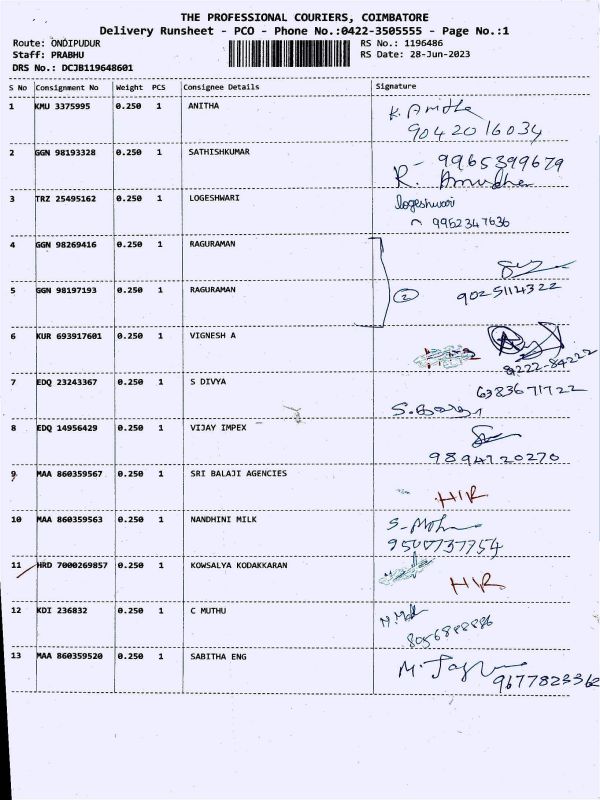 THE PROFESSIONAL COURIERS, COIMBATORE
Delivery Runsheet - PCO - Phone No.:0422-3505555 - Page No.:1
Route: ONDIPUDUR
RS No.: 1196486
Staff: PRABHU
RS Date: 28-Jun-2023
DRS No.: DCJB119648601
S No Consignment No Weight PCS Consignee Details Signature
1 KMU 3375995 0.250 1 ANITHA K. Anitha
9042016034
2 GGN 98193328 0.250 1 SATHISHKUMAR 9965399679
R.
3 TRZ 25495162 0.250 1 LOGESHWARI logeshwari
9952347636
4 GGN 98269416 0.250 1 RAGURAMAN
5 GGN 98197193 0.250 1 RAGURAMAN 2 9025114322
6 KUR 693917601 0.250 1 VIGNESH A
84222-84222
7 EDQ 23243367 0.250 1 S DIVYA 6383671722
8 EDQ 14956429 0.250 1 VIJAY IMPEX
9894720270
9 MAA 860359567 0.250 1 SRI BALAJI AGENCIES
HIR
10 MAA 860359563 0.250 1 NANDHINI MILK
9500737754
11 HRD 7000269857 0.250 1 KOWSALYA KODAKKARAN
HIR
12 KDI 236832 0.250 1 C MUTHU
8056888886
13 MAA 860359520 0.250 1 SABITHA ENG
9677823362